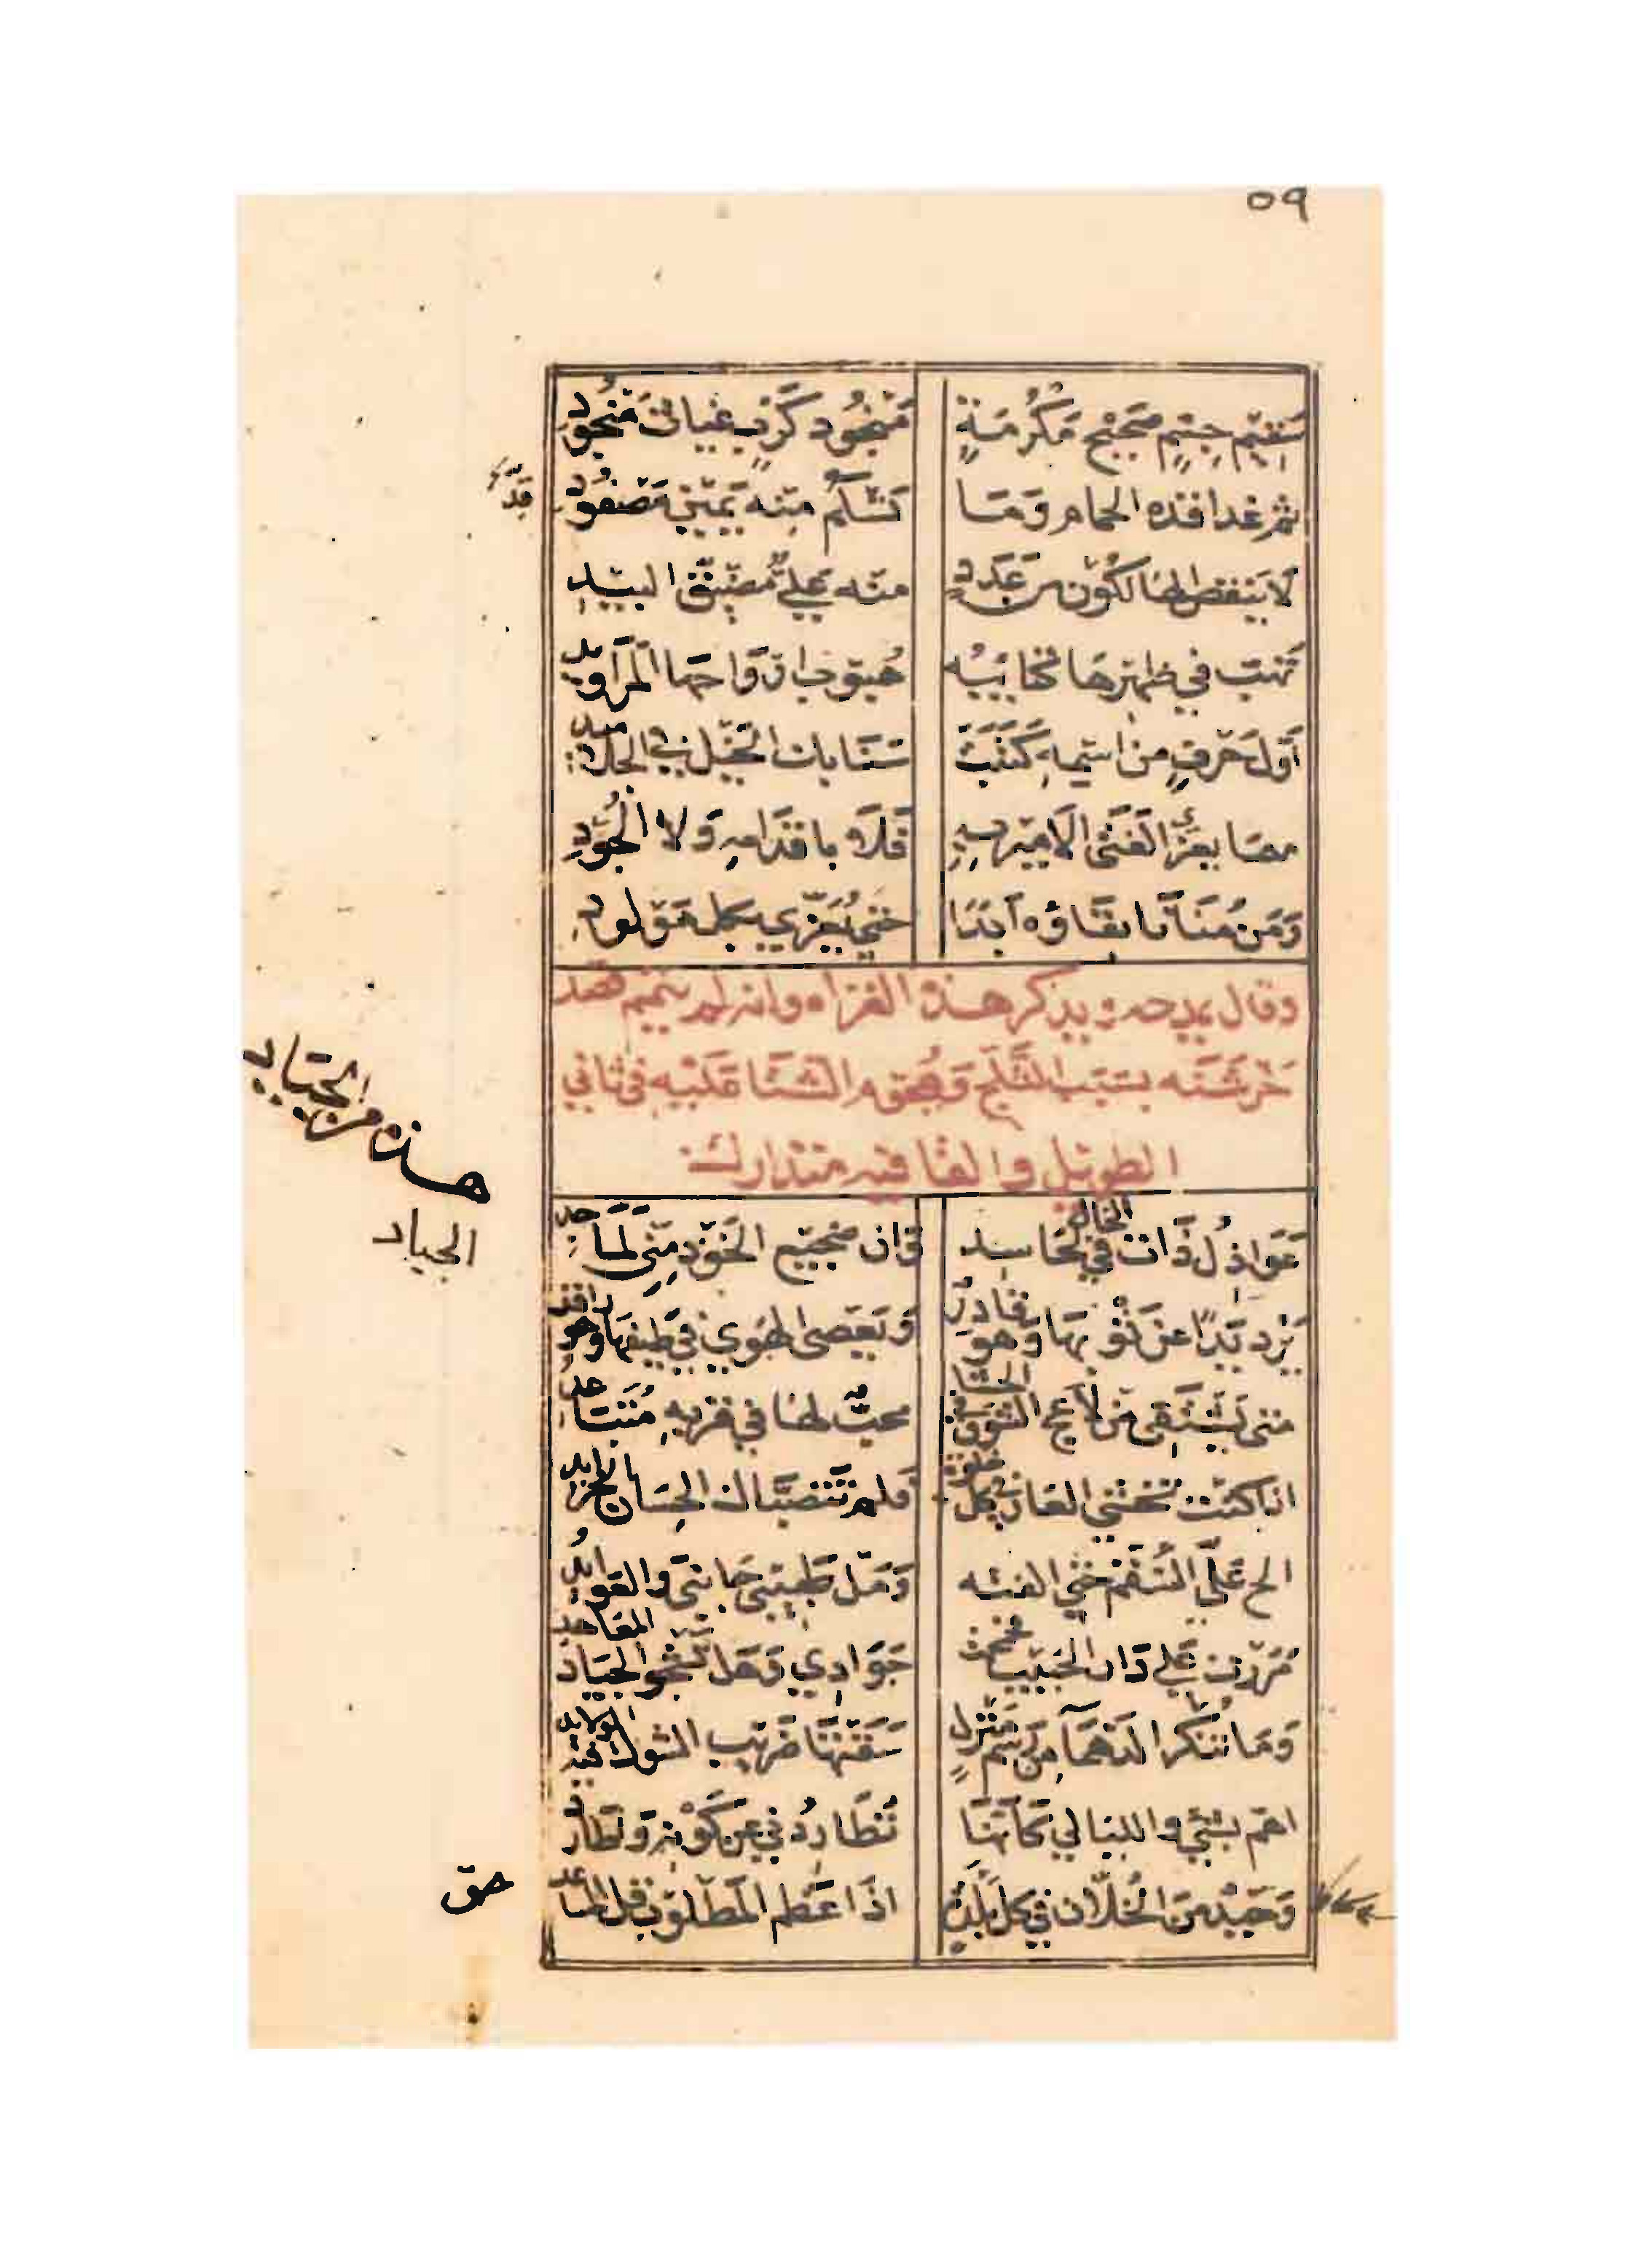 ٥٩
سَقيم جسم صَحيح مَكرُمَةٍ مَنجُود كَرب غياث مَنجُود
ثم غدا قده الحمام وَمَا تسلم منه يَمين مَصفُود
قدّه
لا ينقص الهالكون من عَدَدٍ منه علي مُضيّق البيد
تهب في ظهرها كتائبه هبوب ارواحها المَرَاويد
أوّل حَرف من اسمه كتبت سَنَابك الخيل في الجلاميد
مهما يعز الفتى الامير به فلا باقدامه وَلا الجُود
وَمَن مُنانا بقاؤه أبَدًا حتي يُعَزّي بكل مَولود
وقال يمدحه ويذكر هذه الغزاه وانه لم يتمم قصد
خرشَنَه بسَبَب الثلج وَهجوم الشتا عَليه في ثاني
الطويل والقافيه متدارك
هذه من الجياد
الجياد
عَوَاذل ذَات الخال في حَاسد وان ضجيع الخَود منّي لمَاجد
يَرد يَدًا عن ثوبهَا وَهو قادر وَيَعصى الهوي في طيفهَا وَهو راقد
متى يَشتفي من لاعج الشوق في الحشا محبٌّ لها في قربه مُتباعد
اذا كنت تخشي العار في كل خلوة فلم تتصبّاك الحسان الخرايد
الح عَلَيّ السُقم حتي الفته وَمَل طَبيبي جَانبي وَالعوايدُ
مَرَرت عَلي دَار الحَبيب فحمحمت جَوَادي وَهَل تشجو الجيَاد المعَاهد
وَمَا تُنكر الدَهمآ من رَسم مَنزل سَقَتهَا ضَريب الشول فيه الولايد
اهم بشي والليالي كَأنّهَا تُطَاردُني عن كَونه وَتطاردُ
وَحيد من الخلّان في كل بَلدَة اذَا عَظم المَطلوب قل المساعد
حق